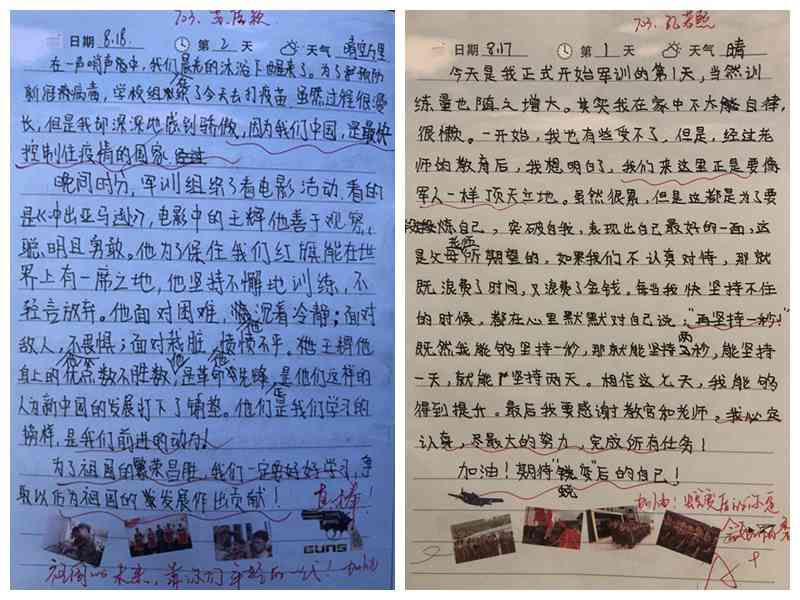 703.
日期 8.18. 第 2 天 天气 晴空万里
在一声哨声中,我们晨光的沐浴下醒来了。为了更预防
新冠病毒,学校组织了今天去打疫苗 虽然过程很漫
长,但是我却深深地感到骄傲,因为我们中国,是最快
控制住疫情的国家
晚间时分,军训组织了看电影活动.看的
是《冲出亚马逊》,电影中的王辉他善于观察,
聪明且勇敢。他为了保住我们红旗能在世
界上有一席之地,他坚持不懈地训练,不
轻言放弃。他面对困难,沉着冷静;面对
敌人,不畏惧;面对栽脏,愤愤不平。他王辉他
身上的优点数不胜数;是革命先锋,是他们这样的
人为新中国的发展打下了铺垫。他们是我们学习的
榜样,是我们前进的动力
为了祖国的繁荣昌盛,我们一定要好好学习,争
取以后为祖国的发展作出贡献!
GUNS
祖国的未来,靠你们年轻的一代!加油
703.
日期 8.17 第 1 天 天气 晴
今天是我正式开始军训的第1天,当然训
练量也随之增大。其实我在家中不太自律,
很懒。一开始,我也有些受不了,但是,经过老
师的教育后,我想明白了,我们来这里正是要像
军人一样顶天立地。虽然很累,但是这都是为了要
锻炼自己,突破自我,表现出自己最好的一面,这
是父母老师所期望的,如果我们不认真对待,那就
既浪费了时间,又浪费了金钱。每当我快坚持不住
的时候,都在心里默默对自己说:"再坚持一秒!"
既然我能够坚持一秒,那就能坚持两秒,能坚持
一天,就能坚持两天。相信这七天,我能够
得到提升。最后我要感谢教官和老师。我必定
认真,尽最大的努力,完成所有任务!
加油!期待"蜕变"后的自己!
蜕
加油!蜕变后的你是
A+